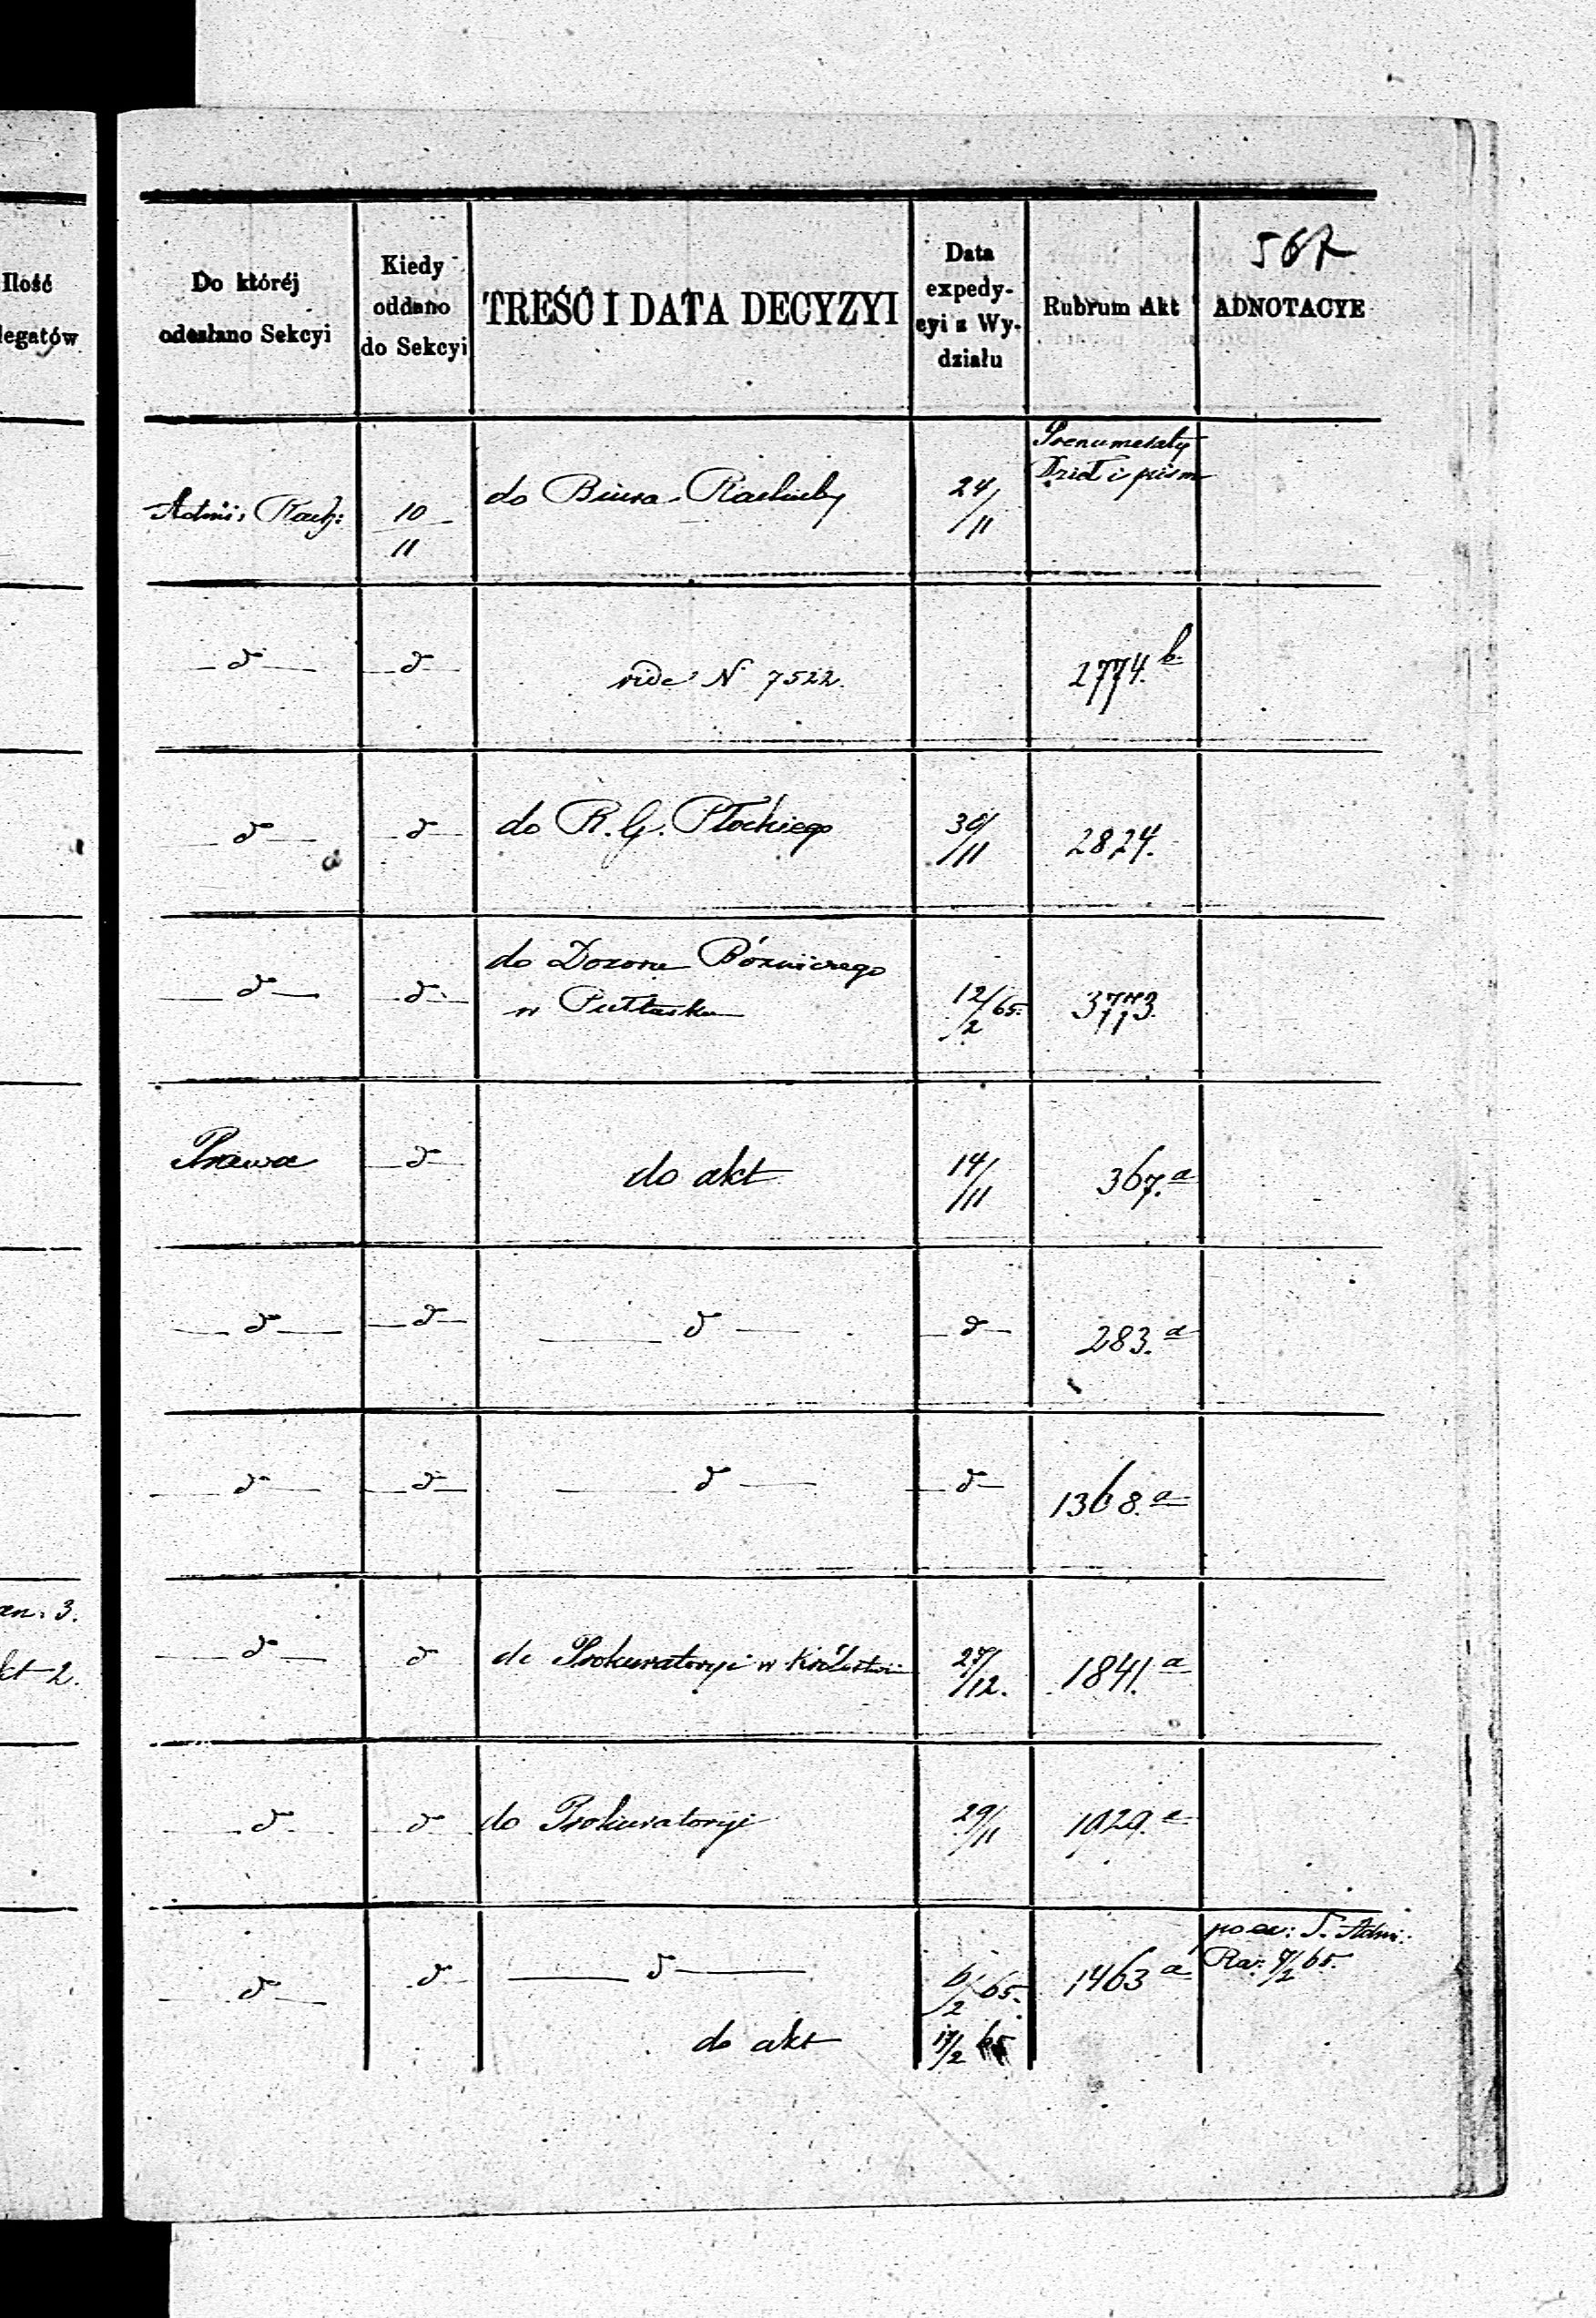 Ilość
legatów
an: 3.
kt 2.
567
Do któréj
odesłano Sekcyi
Kiedy
oddano
do Sekcyi
TREŚĆ I DATA DECYZYI
Data
expedy-
cyi z Wy-
działu
Rubrum Akt
ADNOTACYE
Admi: Rach: 10/11 do Biura 24/11 Prenumeraty
Dzieł i pism
—d°— —d°— vide N° 7522. 2774.b
—d°— —d°— do R. G. Płockiego 30/11 2824.
—d°— —d°— do Dozoru Bóżniczego
w Pułtusku 12/2 65. 3773.
Prawa —d°— do akt 14/11 367.a
—d°— —d°— —d°— —d°— 283.a
—d°— —d°— —d°— —d°— 1368.a
—d°— d° do Prokuratoryi w Królestwie 27/12. 1841.a
—d°— d° do Prokuratoryi 29/11 1929.a
—d°— d° —d°— 6/2 65. 1463 a
do akt 17/2 65
Adm:
7/2 65.